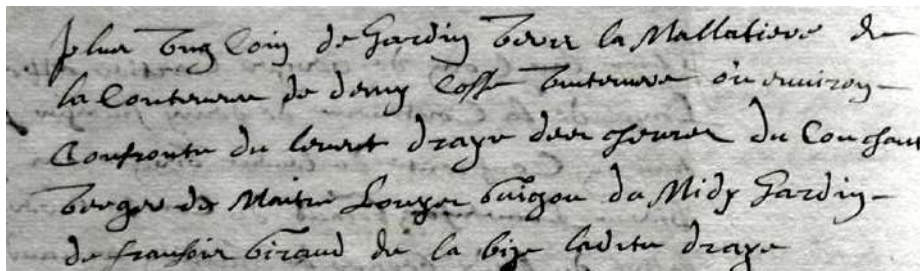 Plus ung Coin de Jardin vers la Mallatiere de
la Contenene de demy Cosse buterneve ou environ
Confronte du levant draye des chevres du Couchant
verger de Maitre Louyse guigou du Midy Jardin
de fransois giraud de la bize ladite draye